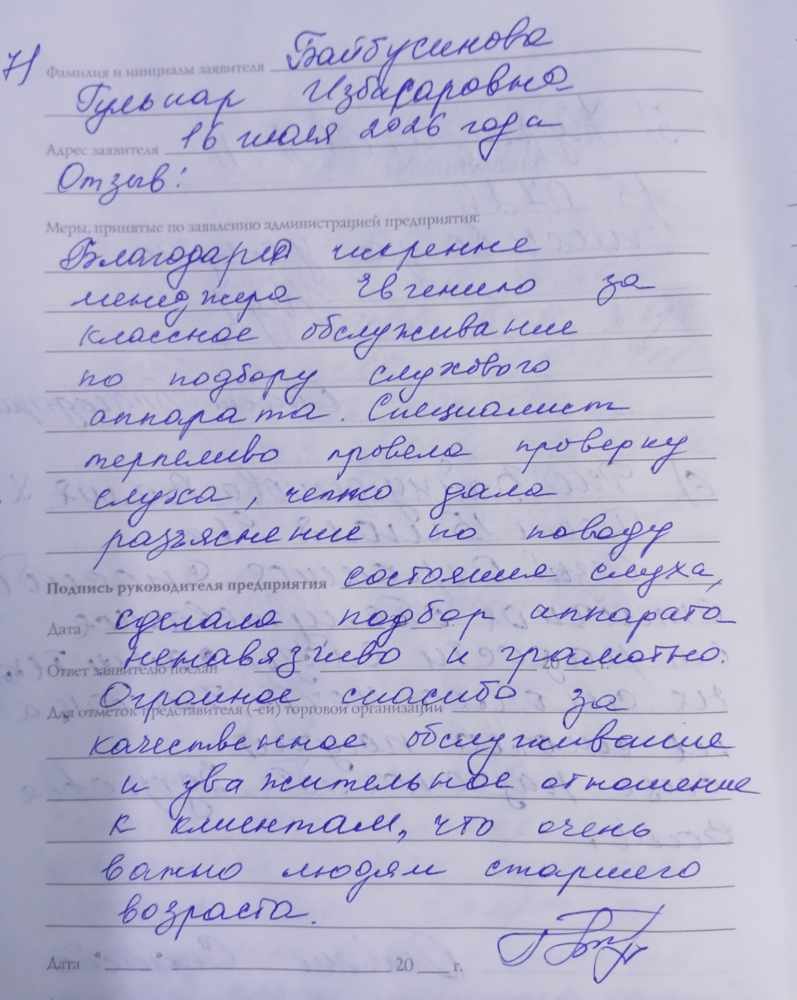 7) Фамилия и инициалы заявителя Байбусинова
Гульнар Избасаровна
Адрес заявителя 16 июля 2026 года
Отзыв:
Меры, принятые по заявлению администрацией предприятия:
Благодарю искренне
менеджера Евгению за
классное обслуживание
по подбору слухового
аппарата. Специалист
терпеливо провела проверку
слуха, четко дала
разъяснение по поводу
Подпись руководителя предприятия состояния слуха,
Дата сделала подбор аппарата
ненавязчиво и грамотно.
Ответ заявителю послан 20 г.
Огромное спасибо за
Для отметок представителя (-ей) торговой организации
качественное обслуживание
и уважительное отношение
к клиентам, что очень
важно людям старшего
возраста.
Дата " " 20 г.